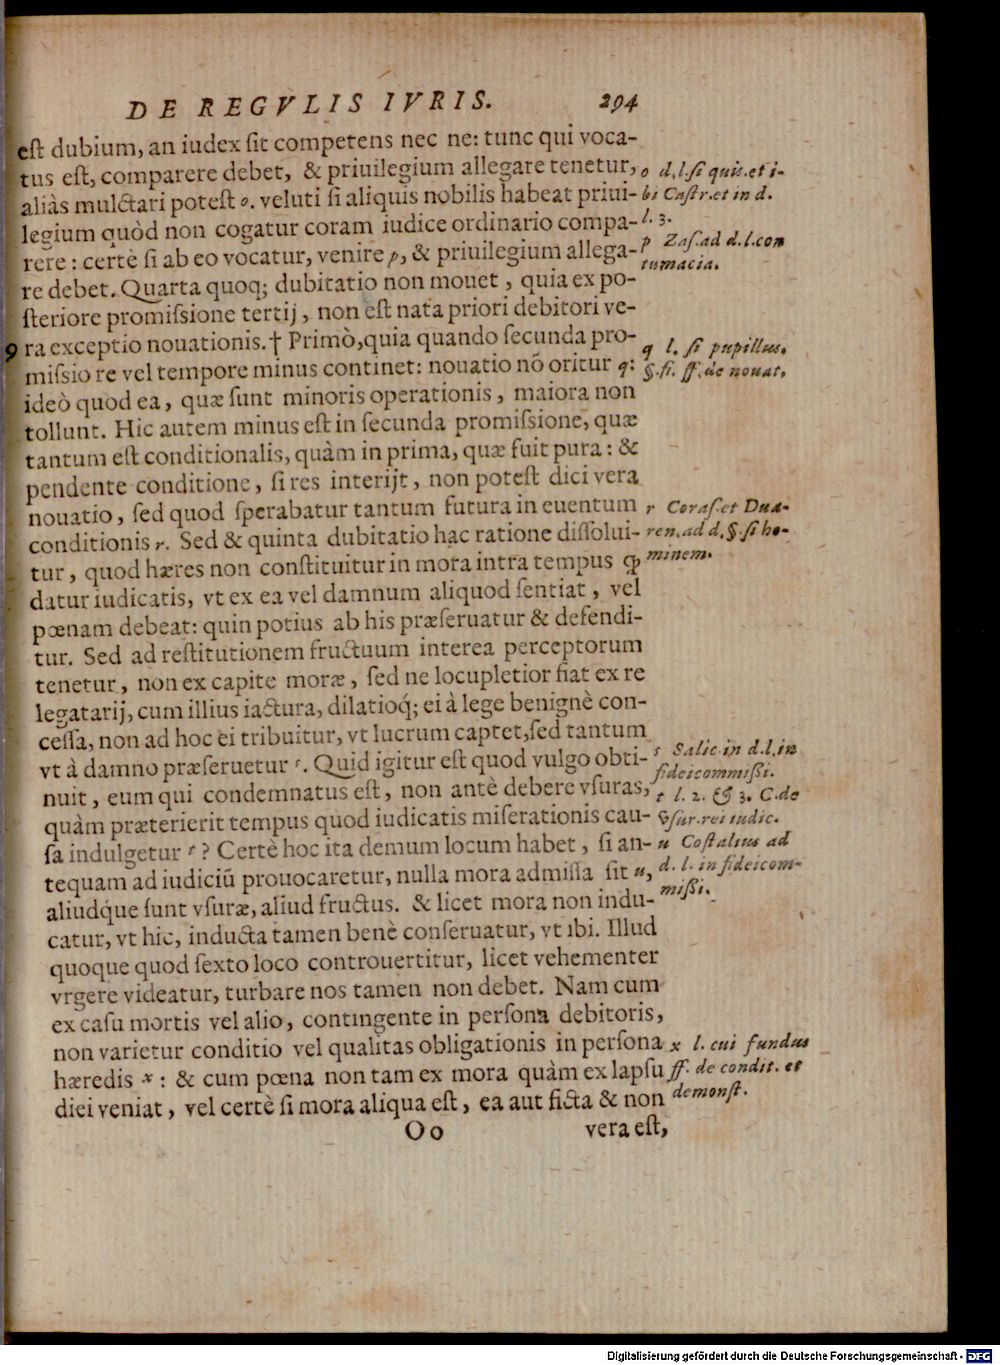 DE REGVLIS IVRIS. 294
est dubium, an iudex sit competens nec ne: tunc qui voca-
tus est, comparere debet, & priuilegium allegare tenetur,
aliàs mulctari potest o. veluti si aliquis nobilis habeat priui-
legium quòd non cogatur coram iudice ordinario compa-
rere: certè si ab eo vocatur, venire p, & priuilegium allega-
re debet. Quarta quoq; dubitatio non mouet, quia ex po-
steriore promissione tertij, non est nata priori debitori ve-
9 ra exceptio nouationis. † Primò, quia quando secunda pro-
missio re vel tempore minus continet: nouatio nõ oritur q:
ideò quod ea, quæ sunt minoris operationis, maiora non
tollunt. Hic autem minus est in secunda promissione, quæ
tantum est conditionalis, quàm in prima, quæ fuit pura: &
pendente conditione, si res interijt, non potest dici vera
nouatio, sed quod sperabatur tantum futura in euentum
conditionis r. Sed & quinta dubitatio hac ratione dissolui-
tur, quod hæres non constituitur in mora intra tempus ꝙ
datur iudicatis, vt ex ea vel damnum aliquod sentiat, vel
pœnam debeat: quin potius ab his præseruatur & defendi-
tur. Sed ad restitutionem fructuum interea perceptorum
tenetur, non ex capite moræ, sed ne locupletior fiat ex re
legatarij, cum illius iactura, dilatioq́; ei à lege benignè con-
cessa, non ad hoc ei tribuitur, vt lucrum captet, sed tantum
vt à damno præseruetur s. Quid igitur est quod vulgo obti-
nuit, eum qui condemnatus est, non antè debere vsuras,
quàm præterierit tempus quod iudicatis miserationis cau-
sa indulgetur t? Certè hoc ita demum locum habet, si an-
tequam ad iudiciũ prouocaretur, nulla mora admissa sit u,
aliudq́ue sunt vsuræ, aliud fructus. & licet mora non indu-
catur, vt hic, inducta tamen benè conseruatur, vt ibi. Illud
quoque quod sexto loco controuertitur, licet vehementer
vrgere videatur, turbare nos tamen non debet. Nam cum
ex casu mortis vel alio, contingente in persona debitoris,
non varietur conditio vel qualitas obligationis in persona
hæredis x: & cum pœna non tam ex mora quàm ex lapsu
diei veniat, vel certè si mora aliqua est, ea aut ficta & non
Oo vera est,
o d. l. si quis. et i-
bi Castr. et in d.
l. 3.
p Zas. ad d. l. con
tumacia.
q l. si pupillus.
§. fi. ff. de nouat.
r Coras. et Dua-
ren. ad d. §. si ho-
minem.
s Salic in d. l. in
fideicommissi.
t l. 2. & 3. C. de
vsur. rei iudic.
u Costalius ad
d. l. in fideicom-
missi.
x l. cui fundus
ff. de condit. et
demonst.
Digitalisierung gefördert durch die Deutsche Forschungsgemeinschaft - DFG